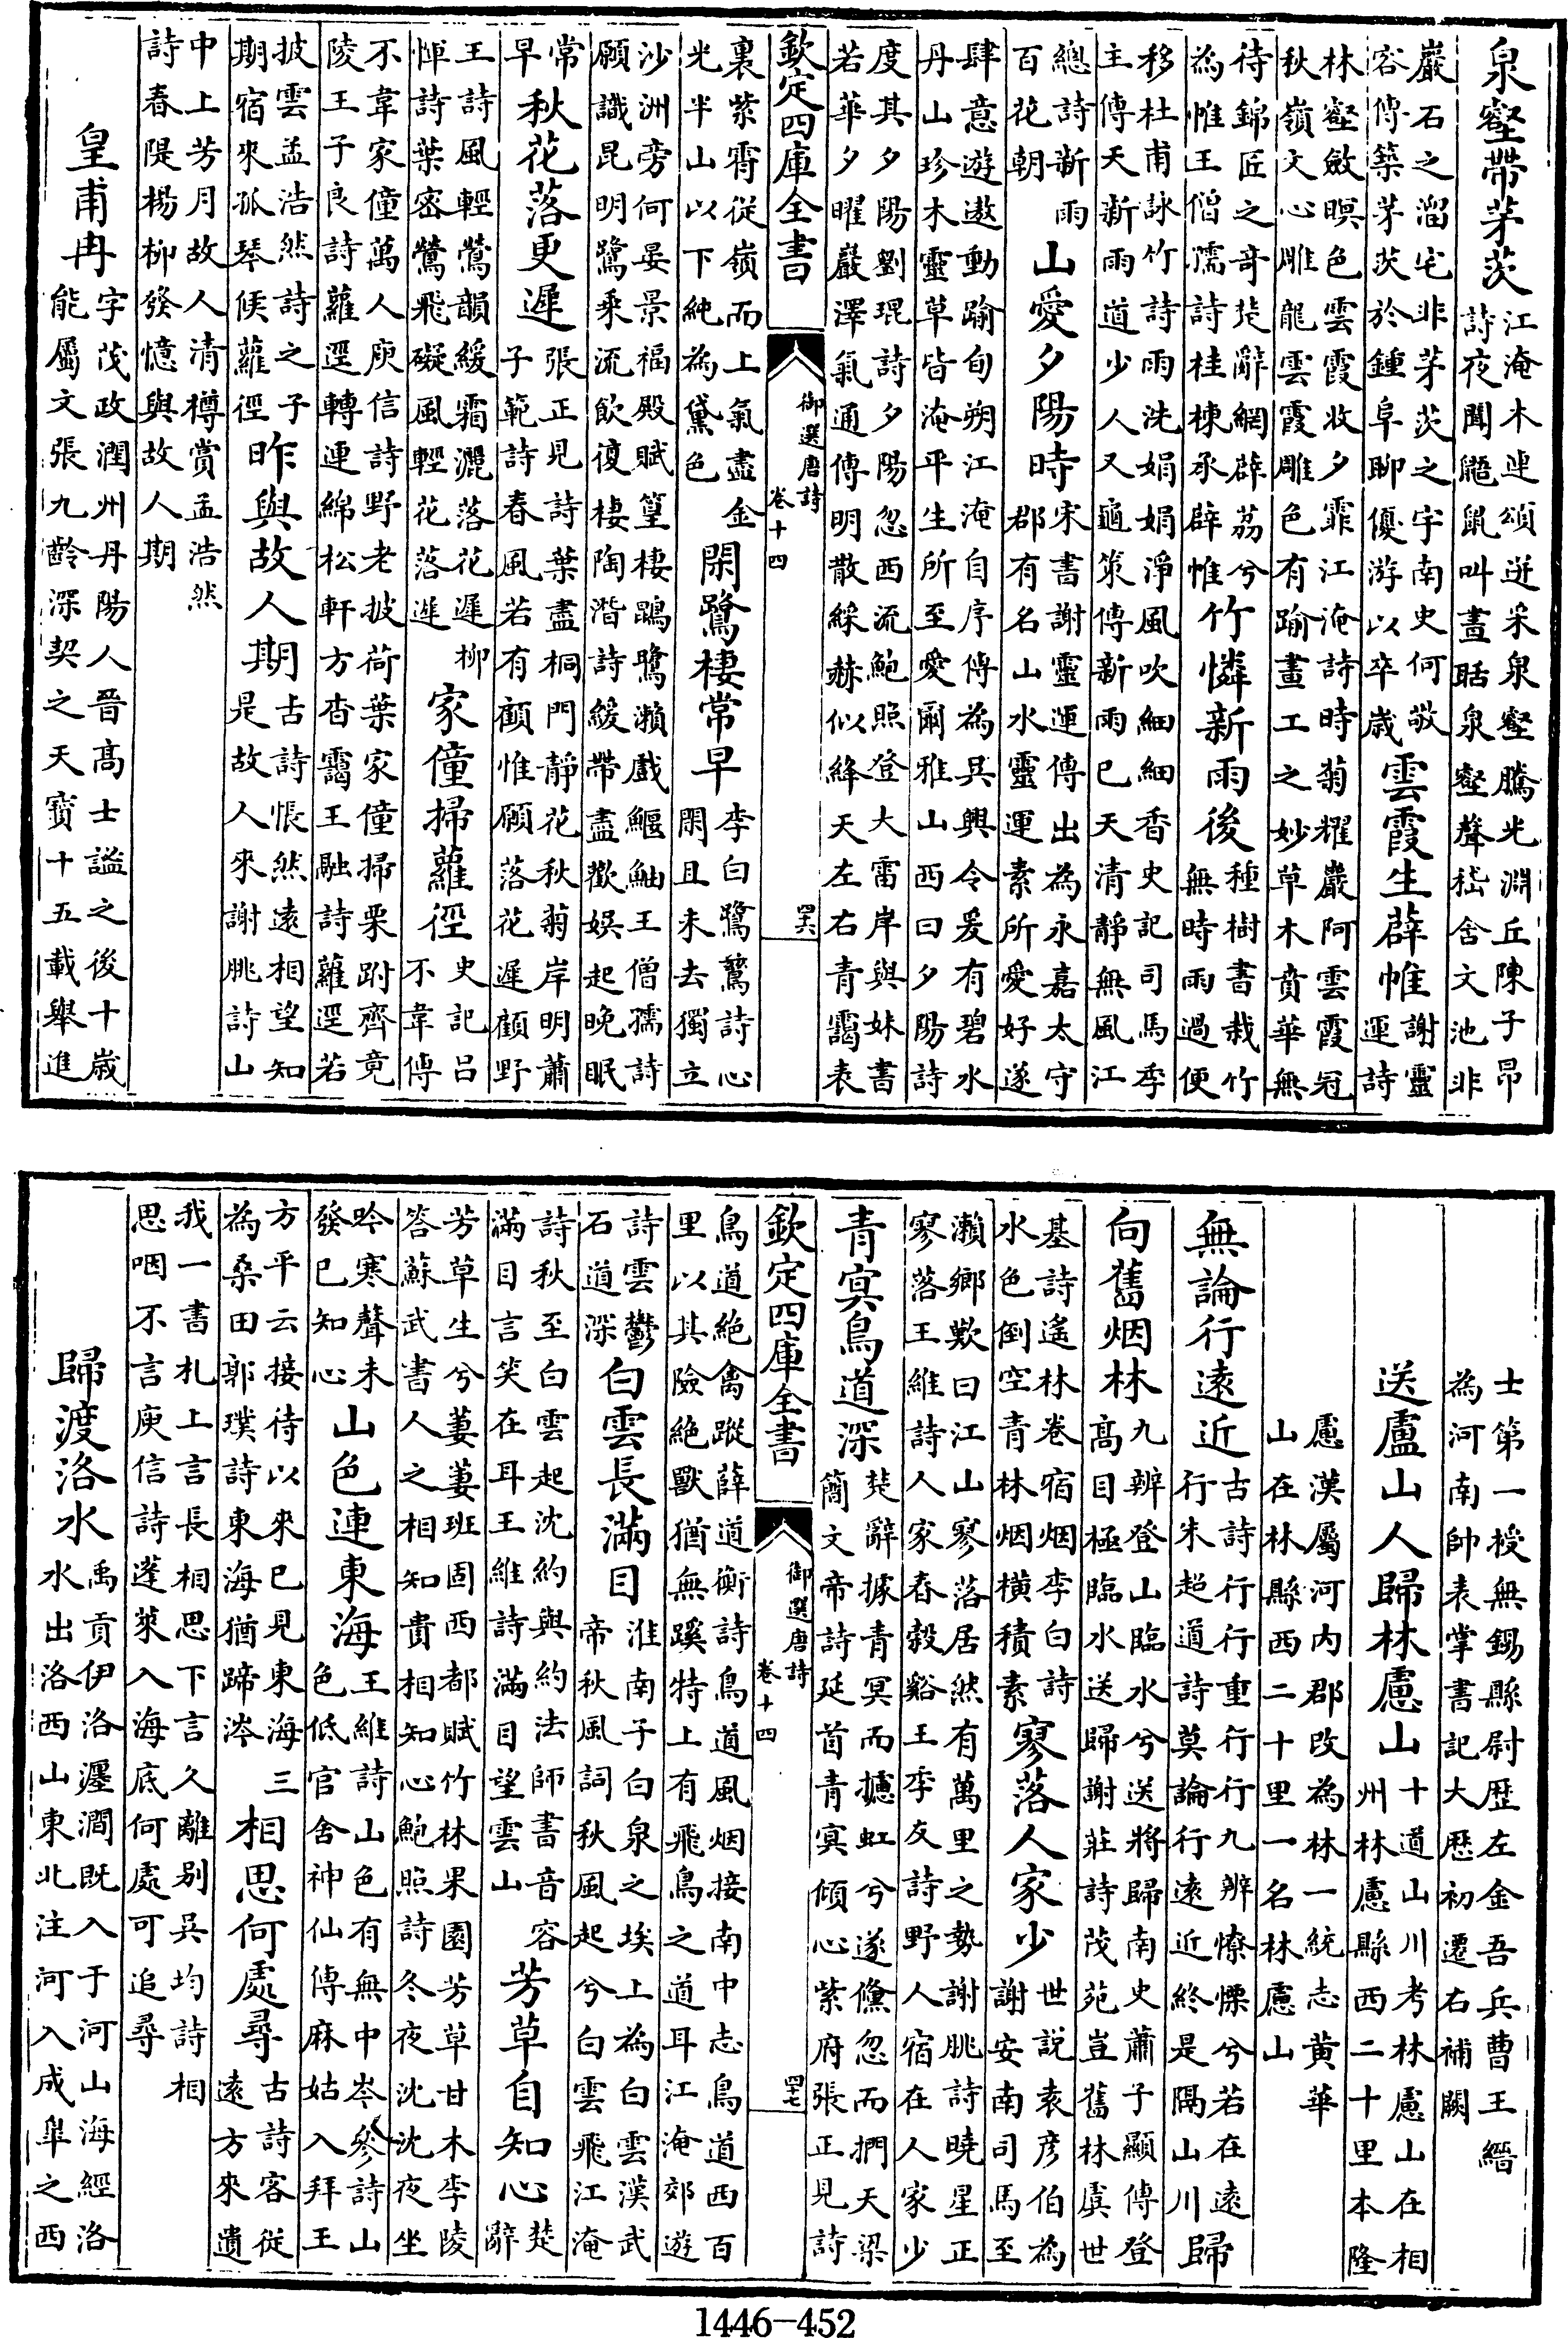 泉壑帶茅茨江淹木連頌迸采泉壑騰光淵丘陳子昂詩夜聞鼯鼠叫晝聒泉壑聲嵇含文池非
巖石之溜宅非茅茨之宇南史何敬容傳築茅茨於鍾阜聊優游以卒歲雲霞生薜帷謝靈運詩
林壑斂暝色雲霞收夕霏江淹詩時菊耀巖阿雲霞冠秋嶺文心雕龍雲霞雕色有踰畫工之妙草木賁華無
待錦匠之奇楚辭網薜荔兮為惟王僧孺詩桂棟承薜惟竹憐新雨後種樹書栽竹無時雨過便
移杜甫詠竹詩雨洗娟娟淨風吹細細香史記司馬季主傳天新雨道少人又龜策傳新雨已天清靜無風江
總詩新雨百花朝山愛夕陽時宋書謝靈運傳出為永嘉太守郡有名山水靈運素所愛好遂
肆意遊遨動踰旬朔江淹自序傳為吳興令爰有碧水丹山珍木靈草皆淹平生所至愛爾雅山西曰夕陽詩
度其夕陽劉琨詩夕陽忽西流鮑照登大雷岸與妹書若華夕曜巖澤氣通傳明散綵赫似絳天左右青靄表
欽定四庫全書 御選唐詩 卷十四 四十六
裏紫霄從嶺而上氣盡金光半山以下純為黛色閑鷺棲常早李白鷺鷥詩心閑且未去獨立
沙洲旁何晏景福殿賦篁棲鵾鷺瀨戲鰋鮋王僧孺詩願識昆明鷺乘流飲復棲陶潛詩緩帶盡歡娛起晚眠
常早秋花落更遲張正見詩葉盡桐門靜花秋菊岸明蕭子範詩春風若有顧惟願落花遲顧野
王詩風輕鶯韻緩霜灑落花遲柳惲詩葉密鶯飛礙風輕花落遲家僮掃蘿徑史記呂不韋傳
不韋家僮萬人庾信詩野老披荷葉家僮掃栗跗齊竟陵王子良詩蘿逕轉連綿松軒方杳靄王融詩蘿逕若
披雲孟浩然詩之子期宿來孤琴候蘿徑昨與故人期古詩悵然遠相望知是故人來謝朓詩山
中上芳月故人清樽賞孟浩然詩春隄楊柳發憶與故人期
皇甫冉字茂政潤州丹陽人晉高士謐之後十歲能屬文張九齡深契之天寶十五載舉進
士第一授無錫縣尉歷左金吾兵曹王縉為河南帥表掌書記大歷初遷右補闕
送盧山人歸林慮山十道山川考林慮山在相州林慮縣西二十里本隆
慮漢屬河內郡改為林一統志黃華山在林縣西二十里一名林慮山
無論行遠近古詩行行重行行九辨憭慄兮若在遠行朱超道詩莫論行遠近終是隔山川歸
向舊烟林九辨登山臨水兮送將歸南史蕭子顯傳登高目極臨水送歸謝莊詩茂苑豈舊林虞世
基詩遙林卷宿烟李白詩水色倒空青林烟橫積素寥落人家少世說袁彥伯為謝安南司馬至
瀨鄉歎曰江山寥落居然有萬里之勢謝朓詩曉星正寥落王維詩人家春穀谿王季友詩野人宿在人家少
青冥鳥道深楚辭據青冥而攄虹兮遂儵忽而捫天梁簡文帝詩延首青冥傾心紫府張正見詩
欽定四庫全書 御選唐詩 卷十四 四十七
鳥道絕禽蹤薛道衡詩鳥道風烟接南中志鳥道西百里以其險絕獸猶無蹊特上有飛鳥之道耳江淹郊遊
詩雲鬱石道深白雲長滿目淮南子白泉之埃上為白雲漢武帝秋風詞秋風起兮白雲飛江淹
詩秋至白雲起沈約與約法師書音容滿目言笑在耳王維詩滿目望雲山芳草自知心楚辭
芳草生兮萋萋班固西都賦竹林果園芳草甘木李陵答蘇武書人之相知貴相知心鮑照詩冬夜沈沈夜坐
吟寒聲未發已知心山色連東海王維詩山色有無中岑參詩山色低官舍神仙傳麻姑入拜王
方平云接待以來已見東海三為桑田郭璞詩東海猶蹄涔相思何處尋古詩客從遠方來遺
我一書札上言長相思下言久離別吳均詩相思咽不言庾信詩蓬萊入海底何處可追尋
歸渡洛水禹貢伊洛瀍澗既入于河山海經洛水出洛西山東北注河入成臯之西
1446-452